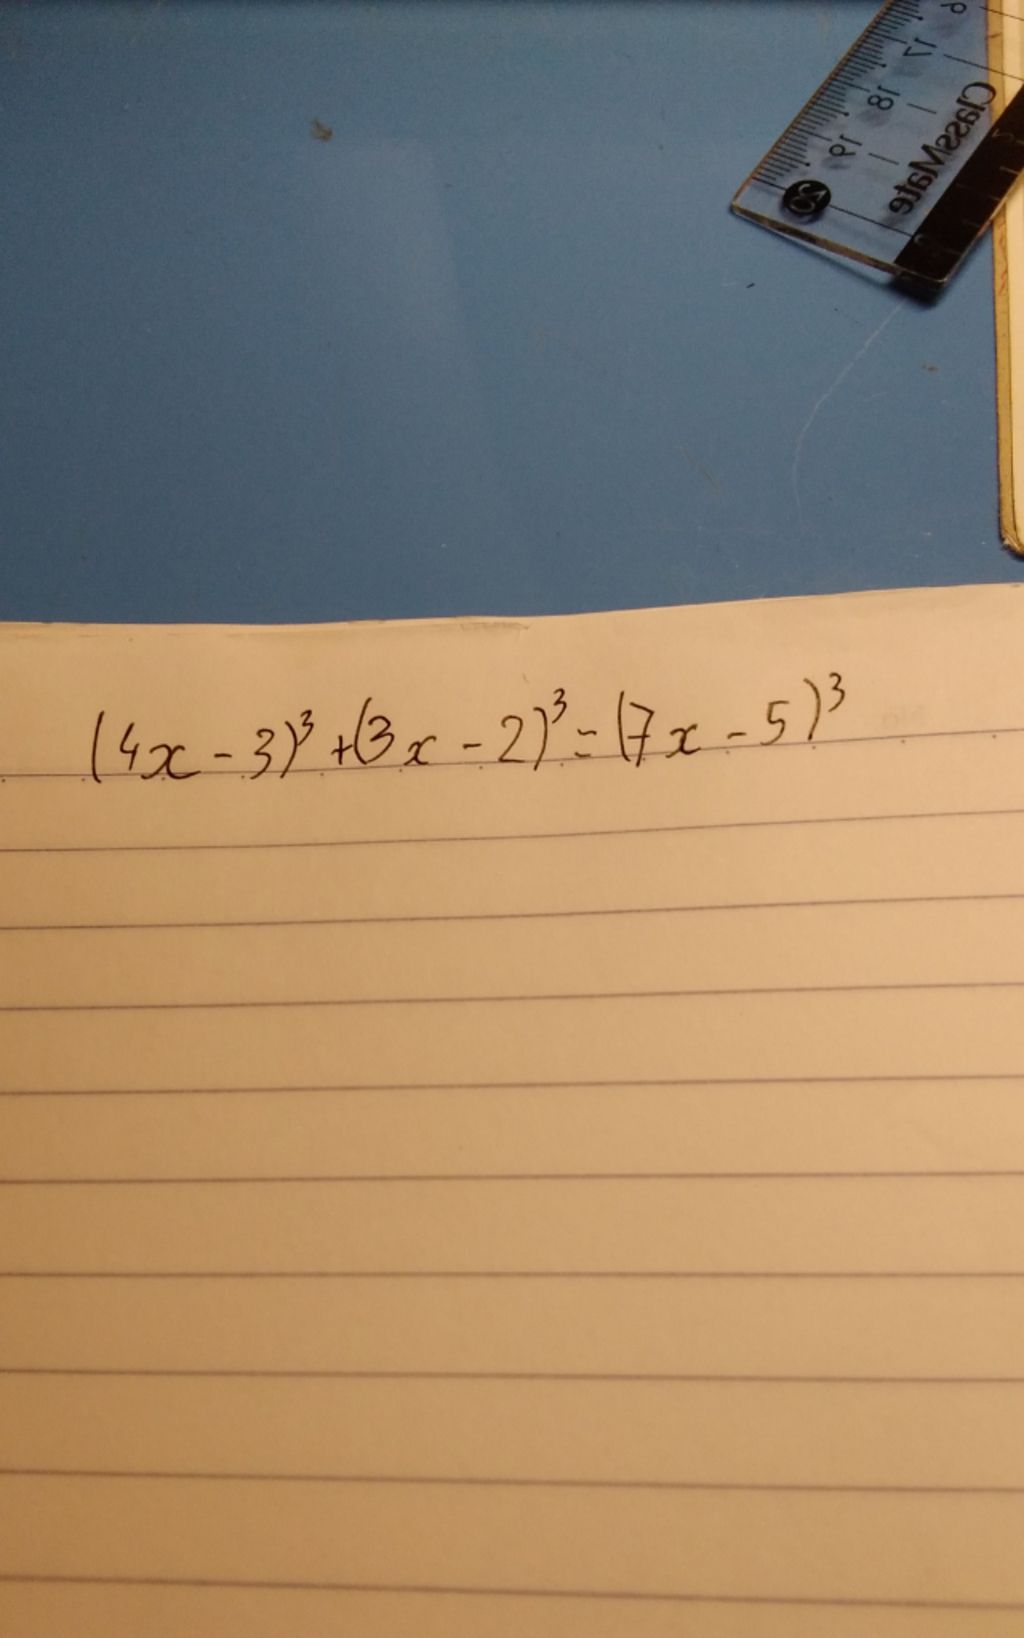 17
18
19
20
ClassMate
(4x - 3)³ + (3x - 2)³ = (7x - 5)³